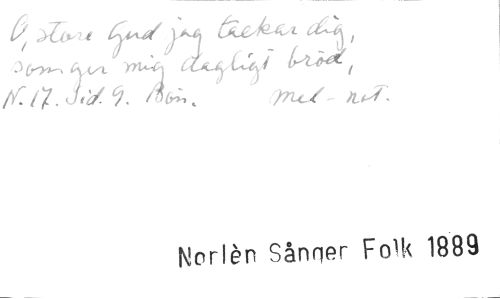 O, store Gud jag tackar dig,
som ger mig dagligt bröd,
N. 17. Sid. 9. Bön. mel-not.
Norlèn Sånger Folk 1889